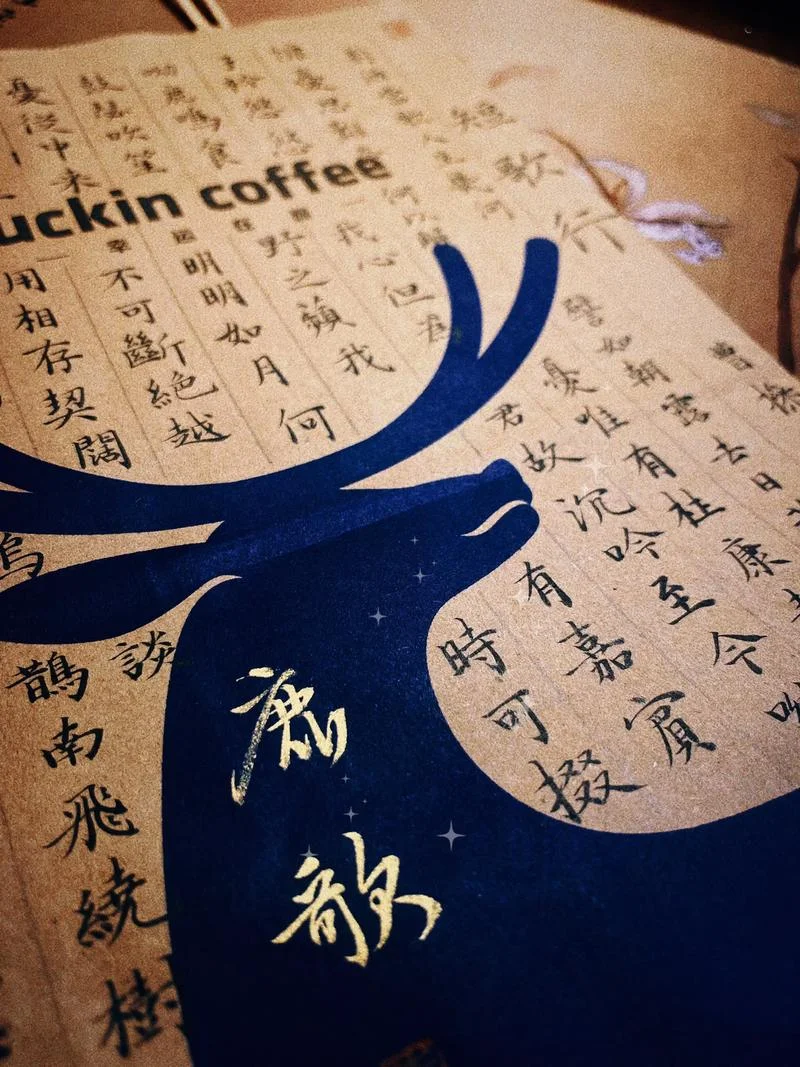 短歌行 曹操
人生幾何 譬如朝露去日
憂思 何以解憂唯有杜康
子衿悠悠我心但為君故沉吟至今呦
呦鹿鳴食野之蘋我有嘉賓
鼓瑟吹笙明明如月何時可掇
憂從中來不可斷絕越
用相存契闊談
烏鵲南飛繞樹
uckin coffee
鹿歌